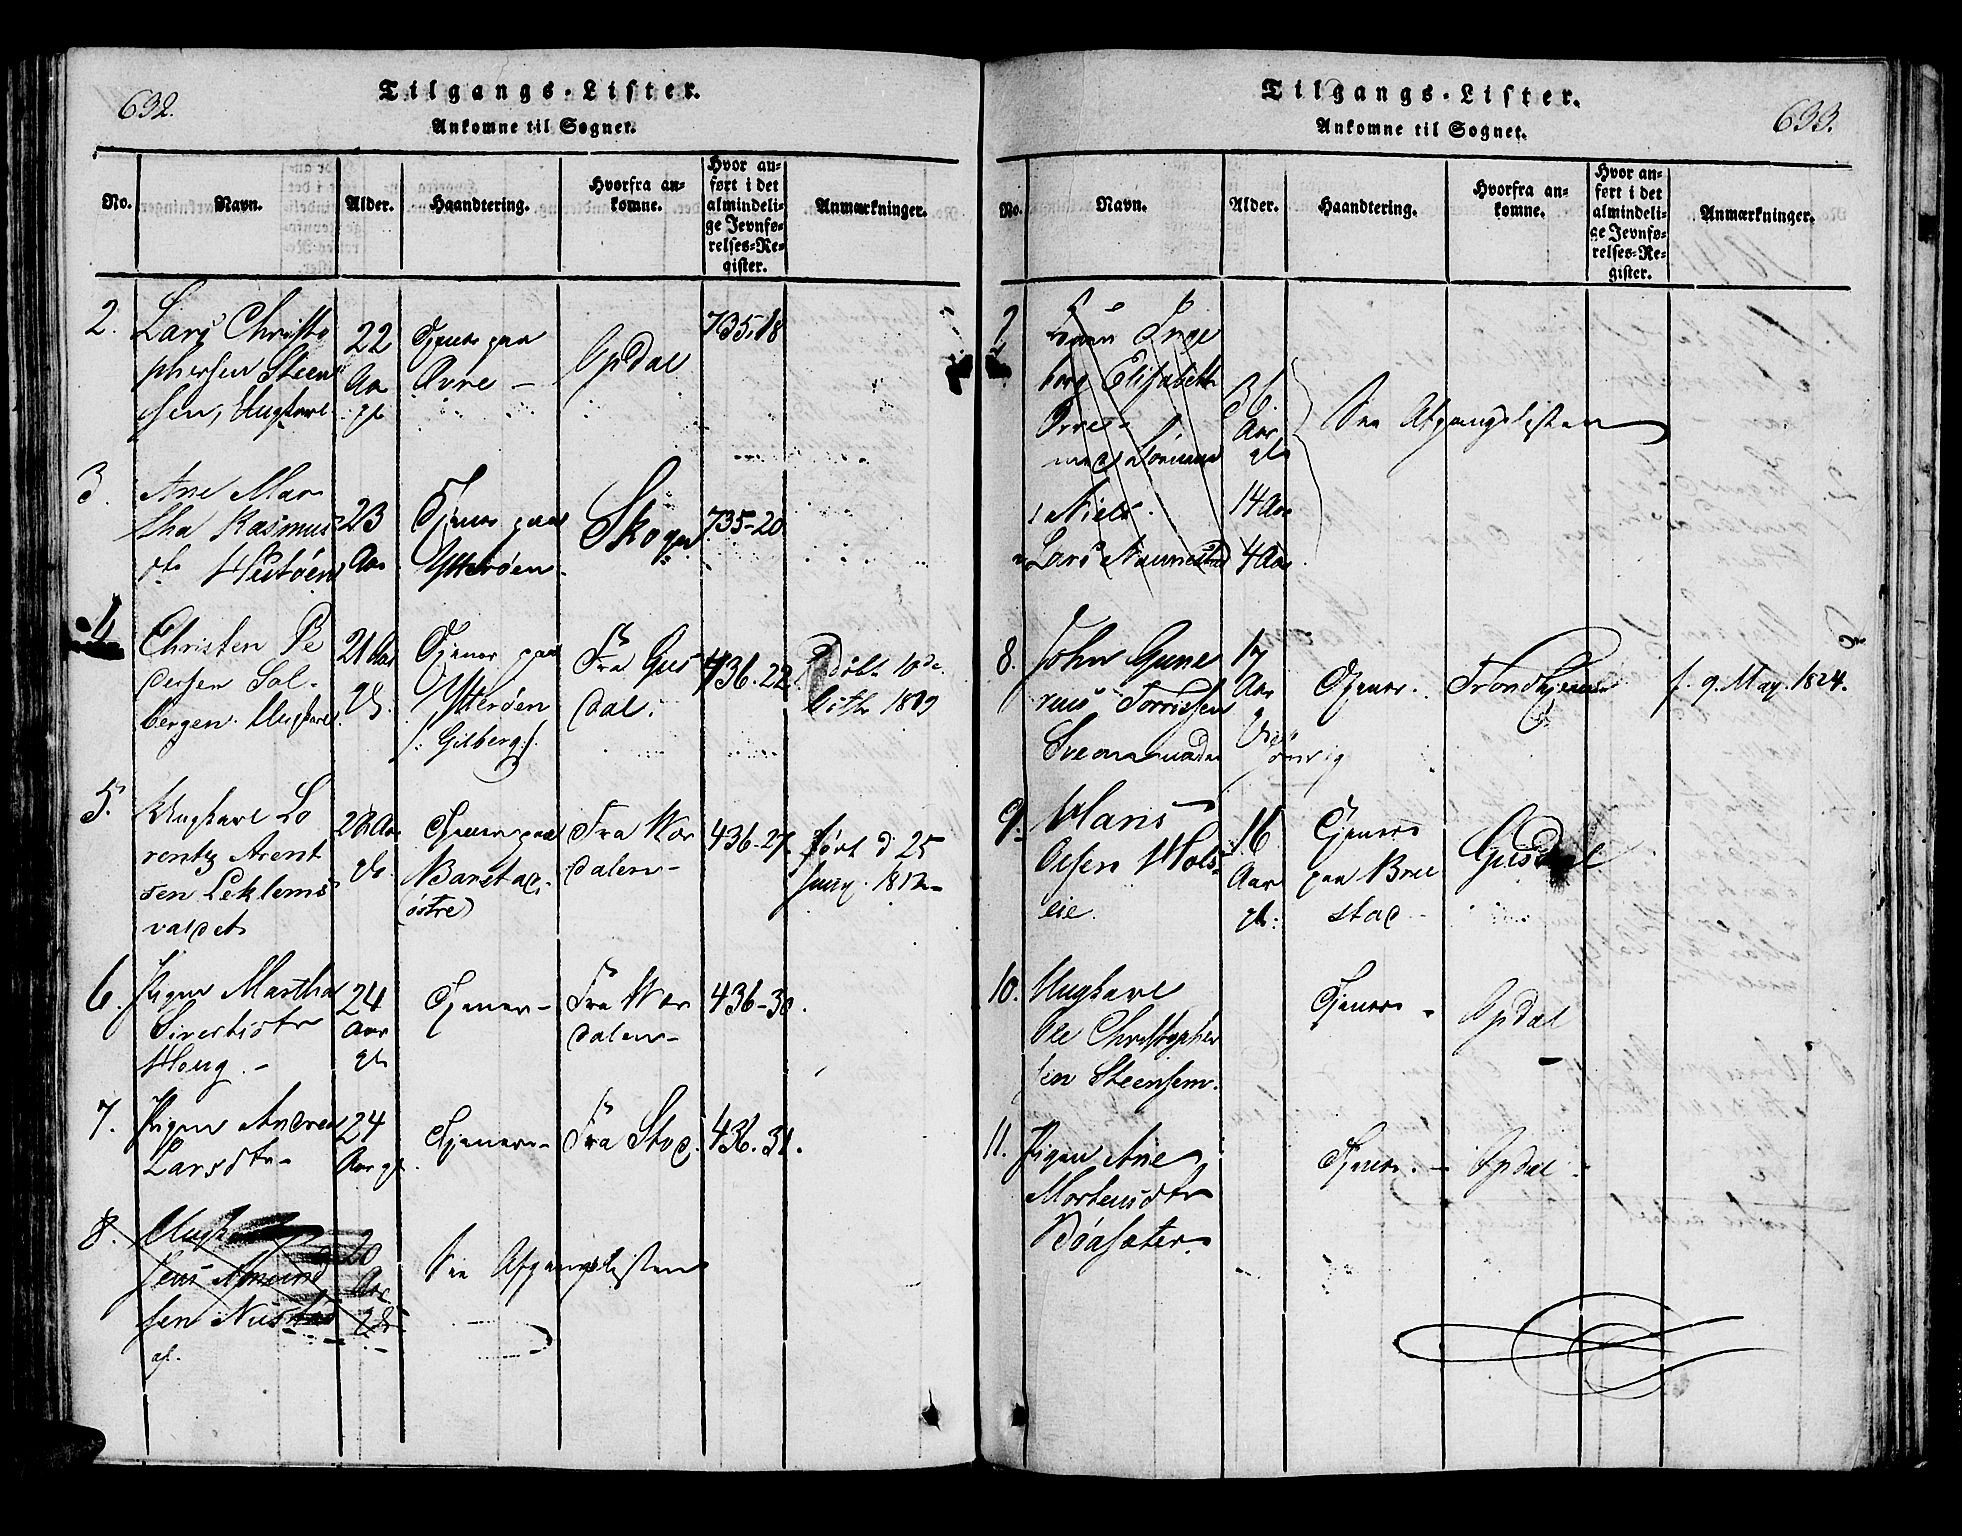 632.
Tilgangs-Lister.
Ankomne til Sognet.
No.
Navn.
Alder.
Haandtering.
Hvorfra an-
komne.
Hvor an-
ført i det
almindeli-
ge Jevnfø-
relses-Re-
gister.
Anmærkninger.
2.
Lars Christo
phersen Steen
sen, Ungkarl
22
Aar
gl.
Tjener paa
Øvre –
Opdal
735.18
3.
Ane Mar
tha Rasmus
dtr
23
Aar
Tjener paa
Ytterøen
Skogn
735-20
4
Christen Pe
dersen Sol-
bergen. Ungkarl
21 Aar
gl.
Tjener paa
Ytterøen
/: Gilberg :/
Fra Gus
dal.
436.22.
Døbt 10de
5.
Ungkarl Lo
rentz Arent
sen Leklems
valdet
Aar
gl.
Tjener paa
østre)
Fra Vær
dalen–
436-27.
Født d 25
6.
Pigen Martha
Sivertsdtr
Houg. –
24
Aar
gl.
Tjener–
Fra Vær
dalen–
436-30.
7.
Pigen Andrea
Larsdtr–
24
Aar gl.
Tjener–
Fra Stod.
436.31.
8.
Ungkarl
Jens Amund
sen
20
Aar
gl.
See Afgangslisten
633.
Tilgangs-Lister.
Ankomne til Sognet.
No.
Navn.
Alder.
Haandtering.
Hvorfra an-
komne.
Hvor an-
ført i det
almindeli-
ge Jevnfø-
relses-Re-
gister.
Anmærkninger.
Inge
borg Elisabeth
med Sønnene
1 Niels.
Lars
36
Aar
gl.
14 Aar
4 Aar
See Afgangslisten
8.
John Gune
rius Torrissen
17
Aar
Tjener.
Trondhjem
f. 9. May. 1824.
9.
Hans
Olsen Hols-
eie.
16
Aar
gl:
Tjener
paa Bree
stad
Gusdal
10.
Ungkarl
Ole Christopher
sen Steensen.
Tjener
Opdal
11.
Pigen Ane
Mortensdtr
Bøasæter.
Tjener. –
Opdal